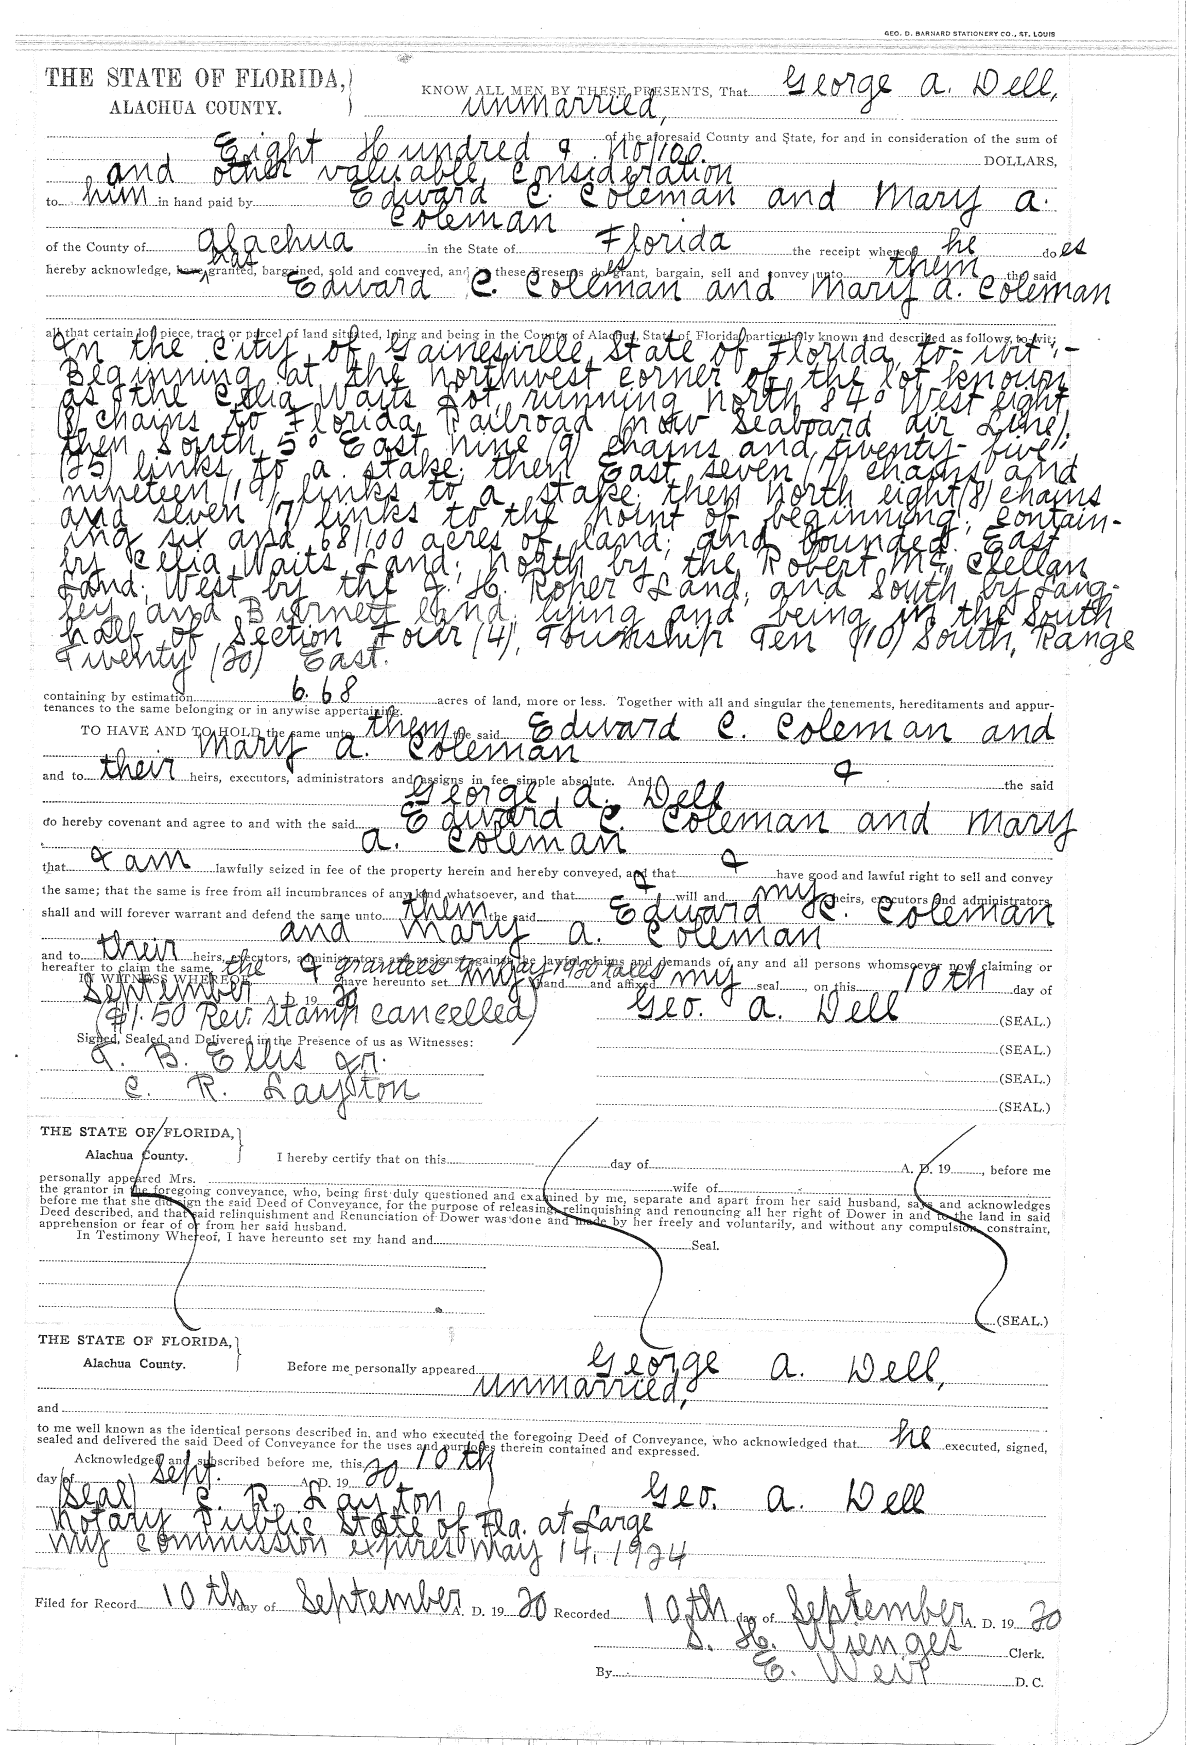 GEO. D. BARNARD STATIONERY CO., ST. LOUIS
THE STATE OF FLORIDA,
ALACHUA COUNTY.
KNOW ALL MEN BY THESE PRESENTS, That George A. Dell,
unmarried,
of the aforesaid County and State, for and in consideration of the sum of
Eight Hundred & No/100 DOLLARS,
and other valuable consideration
to him in hand paid by Edward C. Coleman and Mary A.
Coleman
of the County of Alachua in the State of Florida the receipt whereof he does
hereby acknowledge, have has granted, bargained, sold and conveyed, and by these Presents does grant, bargain, sell and convey unto them the said
Edward C. Coleman and Mary A. Coleman
all that certain lot, piece, tract or parcel of land situated, lying and being in the County of Alachua, State of Florida, particularly known and described as follows, to-wit:
In the City of Gainesville, State of Florida, to-wit:-
Beginning at the northwest corner of the lot known
as the Celia Waits Lot, running north 84° West eight
(8) chains to Florida Railroad (now Seaboard Air Line);
then South 5° East nine (9) chains and twenty-five
(25) links to a stake; then East seven (7) chains and
nineteen (19) links to a stake; then North eight (8) chains
and seven (7) links to the point of beginning; contain-
ing six and 68/100 acres of land; and bounded East
by Celia Waits Land; North by the Robert McClellan
Land; West by the J. H. Roper Land; and South by Lang-
ley and Burnett land; lying and being in the South
half of Section Four (4), Township Ten (10) South, Range
Twenty (20) East.
containing by estimation 6.68 acres of land, more or less. Together with all and singular the tenements, hereditaments and appur-
tenances to the same belonging or in anywise appertaining.
TO HAVE AND TO HOLD the same unto them the said Edward C. Coleman and
Mary A. Coleman
and to their heirs, executors, administrators and assigns in fee simple absolute. And I the said
George A. Dell
do hereby covenant and agree to and with the said Edward C. Coleman and Mary
A. Coleman
that I am lawfully seized in fee of the property herein and hereby conveyed, and that I have good and lawful right to sell and convey
the same; that the same is free from all incumbrances of any kind whatsoever, and that I will and my heirs, executors and administrators
shall and will forever warrant and defend the same unto them the said Edward C. Coleman
and Mary A. Coleman
and to their heirs, executors, administrators and assigns against the lawful claims and demands of any and all persons whomsoever now claiming or
hereafter to claim the same, the grantees to pay 1920 taxes
IN WITNESS WHEREOF I have hereunto set my hand and affixed my seal, on this 10th day of
September A. D. 1920
($1.50 Rev. Stamp cancelled) Geo. A. Dell (SEAL.)
Signed, Sealed and Delivered in the Presence of us as Witnesses:
(SEAL.)
T. B. Ellis Jr.
(SEAL.)
C. R. Layton
(SEAL.)
THE STATE OF FLORIDA,
Alachua County.
I hereby certify that on this day of A. D. 19, before me
personally appeared Mrs. wife of
the grantor in the foregoing conveyance, who, being first duly questioned and examined by me, separate and apart from her said husband, says and acknowledges
before me that she did sign the said Deed of Conveyance, for the purpose of releasing, relinquishing and renouncing all her right of Dower in and to the land in said
Deed described, and that said relinquishment and Renunciation of Dower was done and made by her freely and voluntarily, and without any compulsion, constraint,
apprehension or fear of or from her said husband.
In Testimony Whereof, I have hereunto set my hand and Seal.
(SEAL.)
THE STATE OF FLORIDA,
Alachua County.
Before me personally appeared George A. Dell,
unmarried,
and
to me well known as the identical persons described in, and who executed the foregoing Deed of Conveyance, who acknowledged that he executed, signed,
sealed and delivered the said Deed of Conveyance for the uses and purposes therein contained and expressed.
Acknowledged and subscribed before me, this 10th
day of Sept. A. D. 1920
(Seal) C. R. Layton Geo. A. Dell
Notary Public State of Fla. at Large
My commission expires May 14, 1924
Filed for Record 10th day of September A. D. 1920 Recorded 10th day of September A. D. 1920
S. H. Wienges Clerk.
By E. Weir D. C.